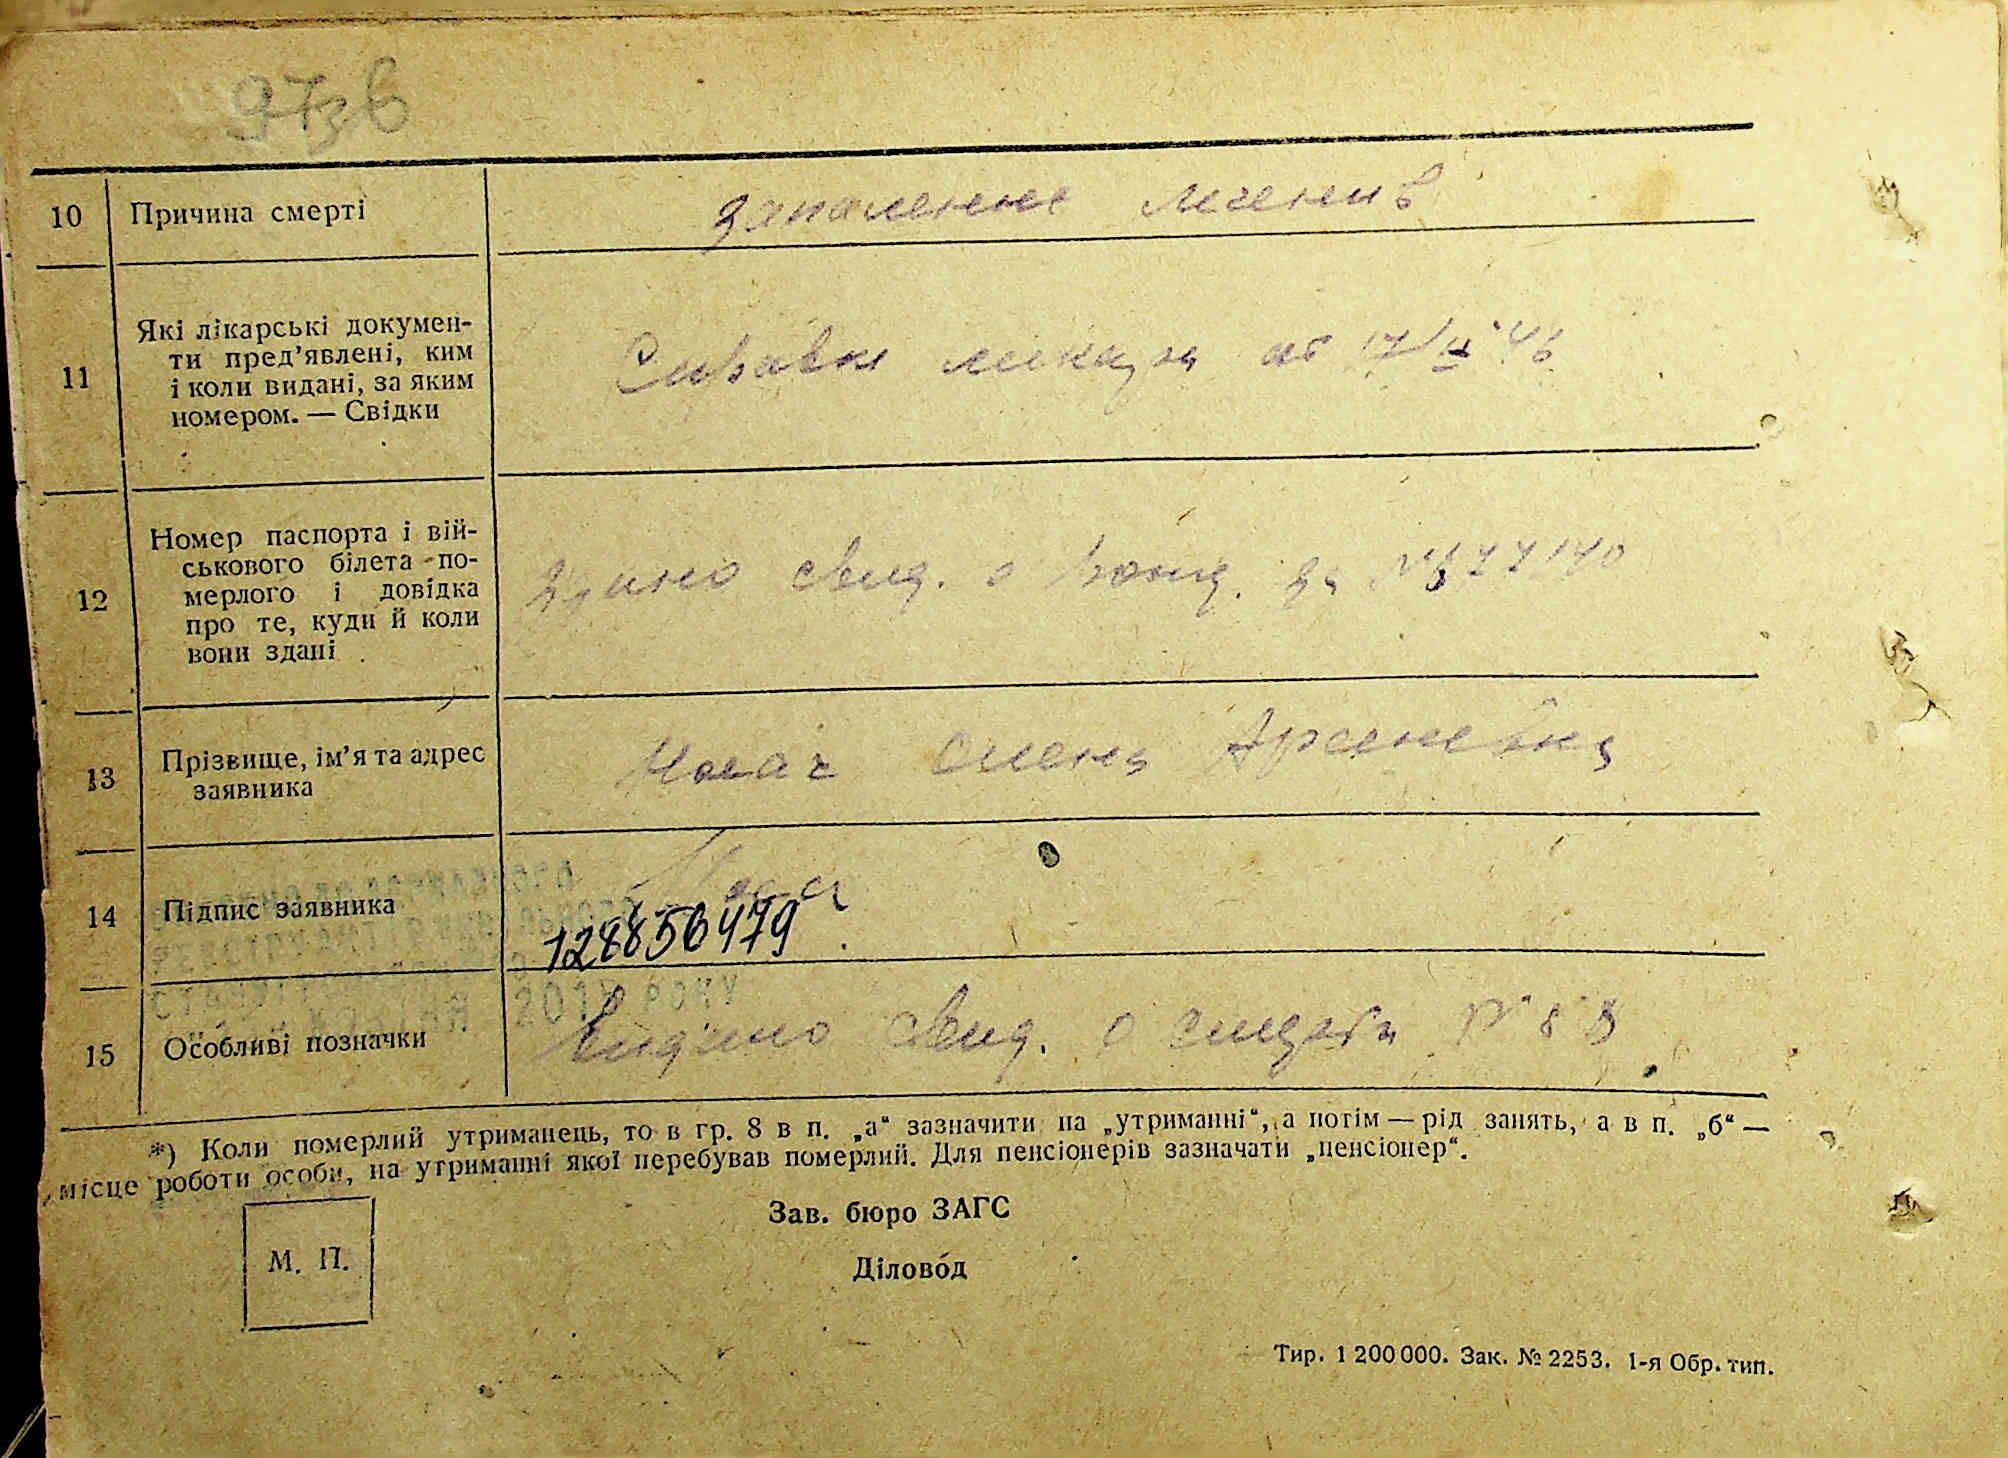 97зв
10 Причина смерті запаленне легенів
11 Які лікарські докумен-
ти пред’явлені, ким
і коли видані, за яким
номером. — Свідки
Справка лекаря от 17/ІХ 46
12 Номер паспорта і вій-
ськового білета по-
мерлого і довідка
про те, куди й коли
вони здані
свид. о рожд. за №
13 Прізвище, ім’я та адрес
заявника
Олена Арсенівна
14 Підпис заявника
128856479
15 Особливі позначки Видано свид. о смерти №
*) Коли померлий утриманець, то в гр. 8 в п. „а“ зазначити на „утриманні“, а потім — рід занять, а в п. „б“ —
місце роботи особи, на утриманні якої перебував померлий. Для пенсіонерів зазначати „пенсіонер“.
Зав. бюро ЗАГС
М. П.
Діловод
Тир. 1 200 000. Зак. № 2253. 1-я Обр. тип.